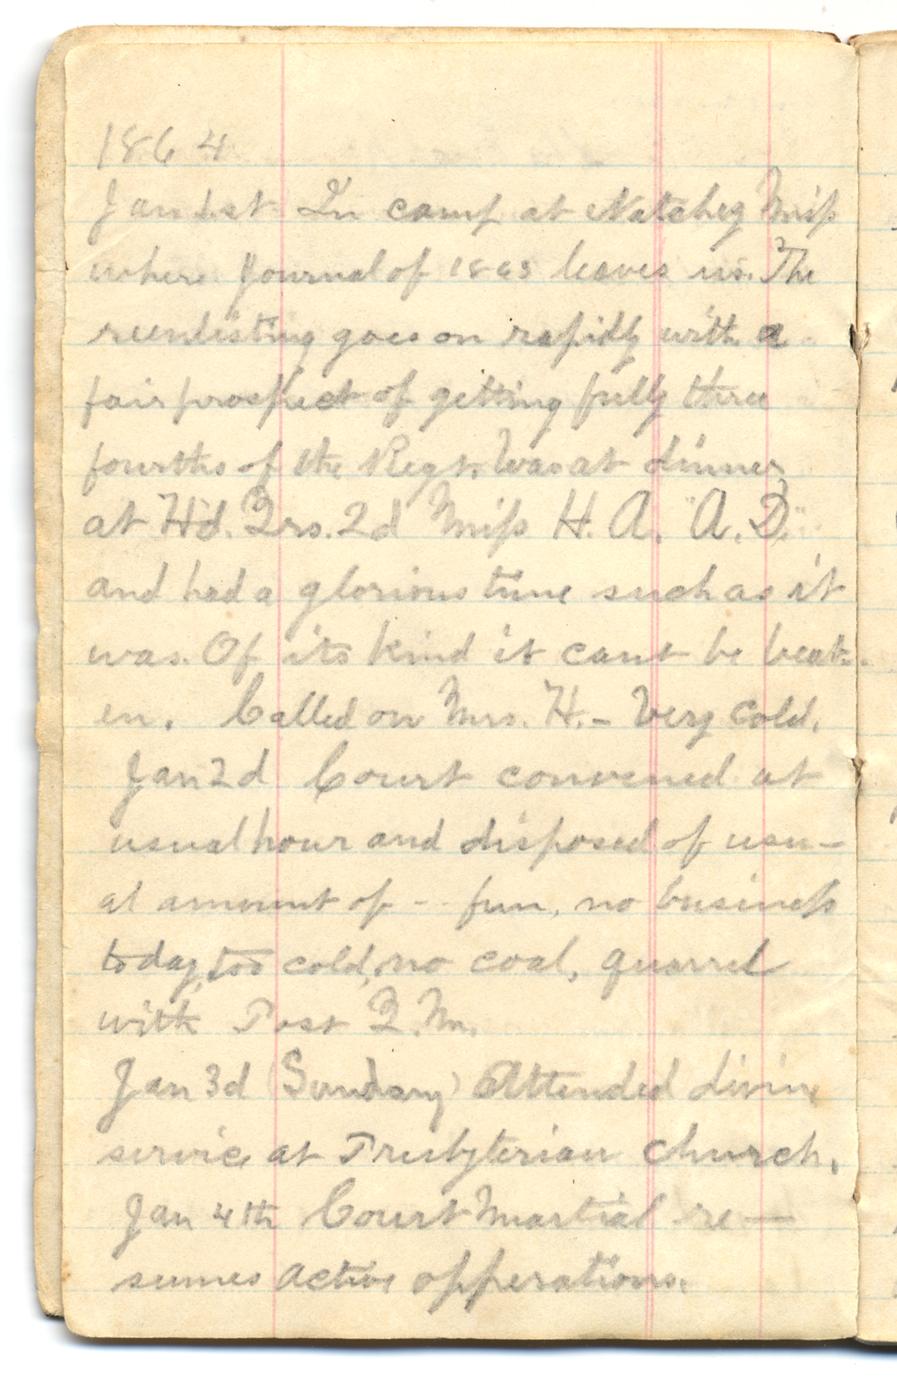 1864
Jan 1st In camp at Natchez Miss
where Journal of 1863 leaves us. The
reenlisting goes on rapidly with a
fair prospect of getting fully three
fourths of the Regt. Was at dinner
at Hd. Qrs. 2d Miss H. A. "A. D."
and had a glorious time such as it
was. Of its kind it cant be beat-
en. Called on Mrs. H. – Very cold.
Jan 2d Court convened at
usual hour and disposed of usu-
al amount of -- fun, no business
today, too cold, no coal, quarrel
with Post Q. M.
Jan 3d (Sunday) Attended divine
service at Presbyterian church.
Jan 4th Court Martial re-
sumes active opperations.